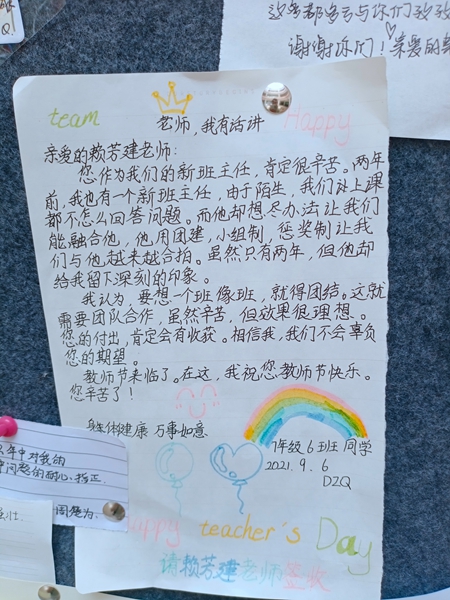 谢谢你们！亲爱的
team
Happy
老师，我有话讲
亲爱的赖芳建老师：
您作为我们的新班主任，肯定很辛苦。两年
前，我也有一个新班主任，由于陌生，我们让上课
都不怎么回答问题。而他却想尽办法让我们
能融合他，他用团建，小组制，惩奖制让我
们与他越来越合拍。虽然只有两年，但他却
给我留下深刻的印象。
我认为，要想一个班像班，就得团结。这就
需要团队合作，虽然辛苦，但效果很理想。
您的付出，肯定会有收获。相信我，我们不会辜负
您的期望。
教师节来临了。在这，我祝您教师节快乐。
您辛苦了！
身体健康 万事如意
7年级6班 同学
2021.9.6
DZQ
年中对我的
耐心指正
Happy teacher's Day
请赖芳建老师签收